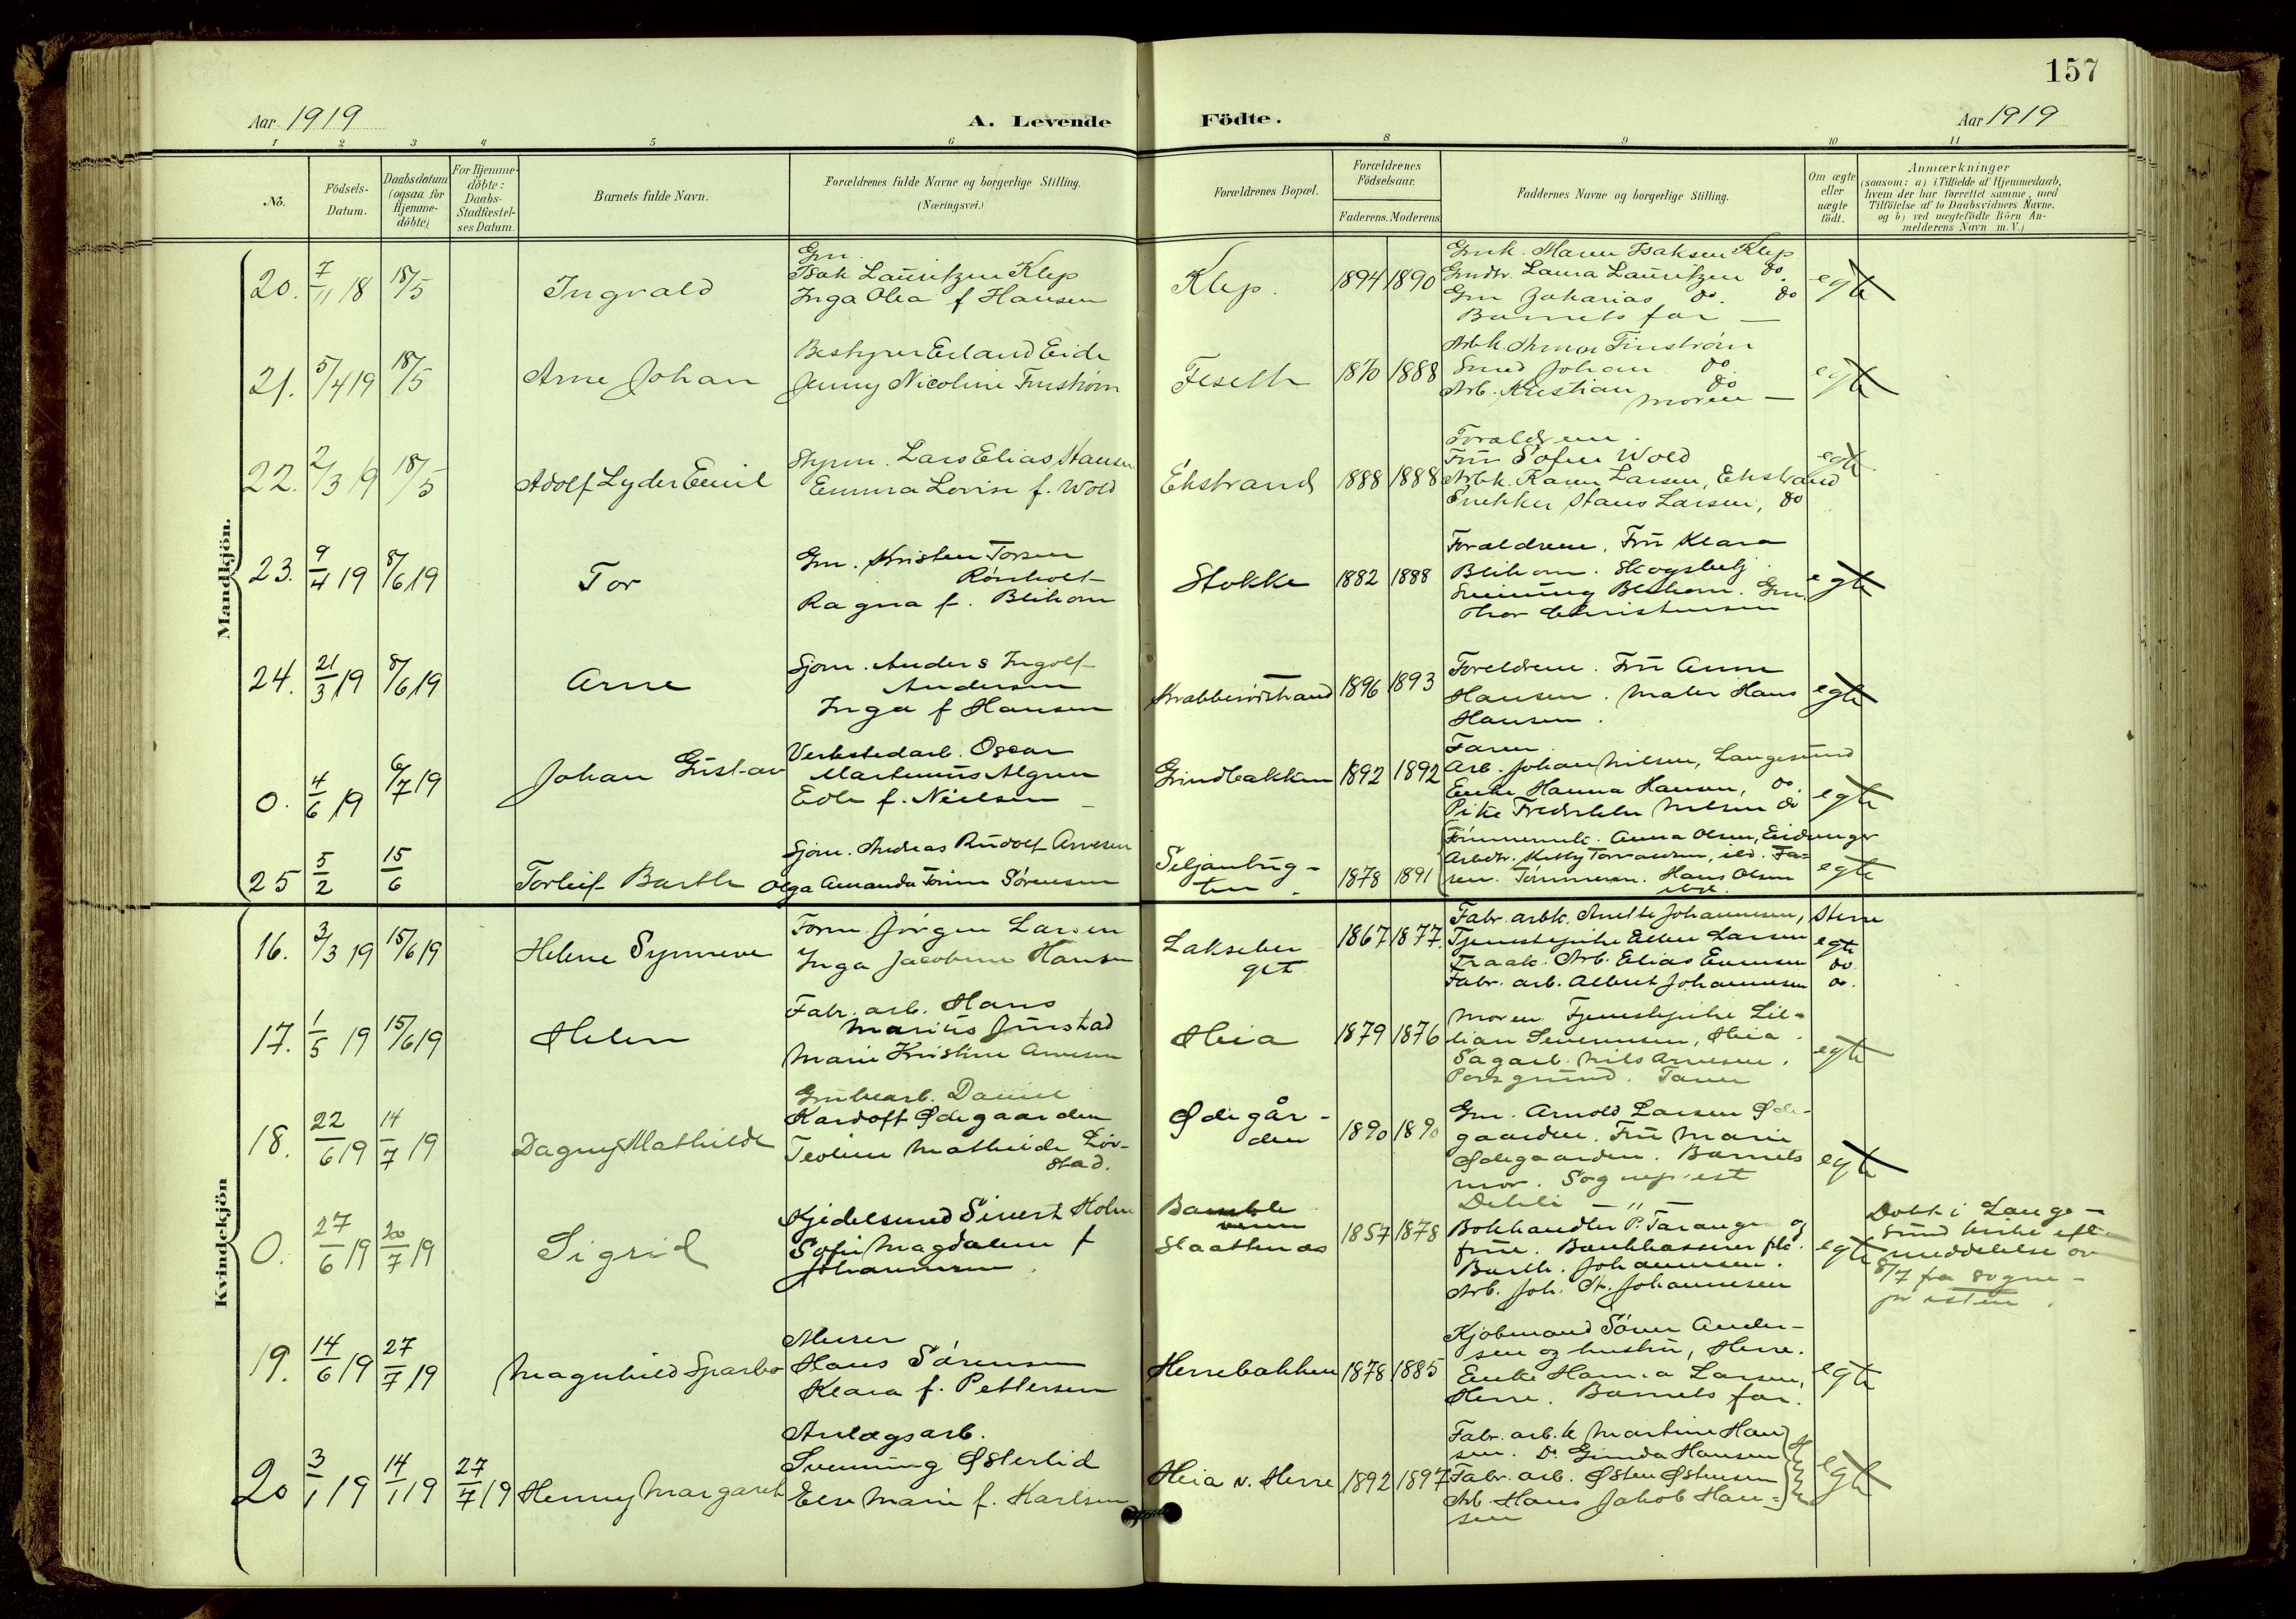 157
Aar 1919
A. Levende Födte.
Aar 1919
1 2 3 4 5 6 8 9 10 11
No.
Födsels-
Datum.
Daabsdatum
(ogsaa for
Hjemme-
döbte)
For Hjemme-
döbte:
Daabs-
Stadfæstel-
ses Datum.
Barnets fulde Navn.
Forældrenes fulde Navne og borgerlige Stilling.
(Næringsvei.)
Forældrenes Bopæl.
Forældrenes
Födselsaar.
Faderens. Moderens
Faddernes Navne og borgerlige Stilling.
Om ægte
eller
uægte
födt.
Anmærkninger
(saasom: a) i Tilfælde af Hjemmedaab,
hvem der har forrettet samme, med
Tilföielse af to Daabsvidners Navne.
og b) ved uægtefödte Börn An-
melderens Navn m. V.)
Mandkjön.
20. 7/11 18 18/5
Ingvald
Gm.
Isak Lauritzen Klep
Inga Olea f Hansen
Klep.
1894 1890
Gmk. Maren Isaksen Klep
Gmdtr. Laura Lauritzen do.
Gm Zakarias do. do
Barnets far —
egte
21. 5/4 19 18/5
Arne Johan
Bestyrer Erland Eide
Jenny Nicoline Finstrøm
Feseth
1870 1888
Arbk. Finstrøm
Smed Johan do.
Arb. Kristian do
moren —
egte
22. 2/3 19 18/5
Adolf Lyder Emil
Styrm. Lars Elias Hansen
Emma Lovise f. Wold
Ekstrand
1888 1888
Forældrene.
Fru Sofie Wold
Arbk. Karen Larsen, Ekstrand
Snekker Hans Larsen, do
egte
23. 9/4 19 8/6 19
Tor
Gm. Kristen Torsen
Rønholt
Ragna f. Blikom
Stokke
1882 1888
Forældrene. Fru Klara
Blikom. Skogsbetj.
Svenning Blikom. Gm.
Thor Christensen
egte
24. 21/3 19 8/6 19
Arne
Sjøm. Anders Ingolf
Andersen
Inga f Hansen
Krabberødstrand
1896 1893
Foreldrene. Fru Anne
Hansen. Maler Hans
Hansen.
egte
0. 4/6 19 6/7 19
Johan Gustav
Verkstedarb. Oscar
Martinius Algren
Edle f. Nielsen
Grindbakken
1892 1892
Faren.
Arb. Johan Nilsen, Langesund
Enke Hanna Hansen, do.
Pike Nilsen do
egte
25 5/2 15/6
Torleif Barth
Sjøm. Andreas Rudolf Arvesen
Olga Amanda Sørensen
Seljanbug-
ten.
1878 1891
Tømmermk. Anna Olsen, Eidanger
Arbdtr. Kitty ibd. Fa-
ren. Tømmerm. Hans Olsen
ibd.
egte
Kvindekjön
16. 3/3 19 15/6 19
Helene Synneve
Form Jørgen Larsen
Inga Jacobine Hansen
Lakseber
get
1867 1877.
Fabr. arbk. Anette Johannesen, Herre
Tjenestepike Ellen Larsen egte
Traak. Arb. Elias Evensen do.
Fabr. arb. Albert Johannesen do.
17. 1/5 19 15/6 19
Helen
Fabr. arb. Hans
Marius Jønstad
Marie Kristine Arvesen
Heia
1879 1876
Moren. Tjenestepike Lil-
lian Severinsen, Heia.
Sagarb. Nils Arvesen,
Porsgrund. Faren
egte
18. 22/6 19 14/7 19
Dagny Mathilde
Grubearb. Daniel
Kardoft Ødegaarden
Teoline Mathilde Løv-
stad.
Ødegår-
den
1890 1890
Gm. Arnold Larsen Øde-
gaarden. Fru Marie
Ødegaarden. Barnets
mor. Sogneprest
Dehli —"—
egte
0. 27/6 19 20/7 19
Sigrid
Kjedelsmed Sivert Holm
Sofie Magdalene f
Johannesen.
Bamble
Slaattenæs
1857 1878
Bokhandler P. Taranger og
frue. Bankkasserer frk.
Barth. Johannesen.
Arb. Joh. St. Johannesen
egte
Døbt i Lange-
sund kirke eft.
meddelelse av
8/7 fra sogne-
presten.
19. 14/6 19 27/7 19
Magnhild Sparbo
Murer
Hans Sørensen
Klara f. Pettersen
Herrebakken
1878 1885
Kjøbmand Søren Ander-
sen og hustru, Herre.
Enke Hanna Larsen,
Herre. Barnets far.
egte
20 3/1 19 14/1 19 27/7 19
Henny Margaret
Anlægsarb.
Svenning Østerlid
Else Marie f. Karlsen
Heia v. Herre
1892 1897
Fabr. arb. k Martine Han
sen. Do Gunda Hansen
Fabr. arb. Østen Østensen
Arb. Hans Jakob Han-
sen
Herre
egte